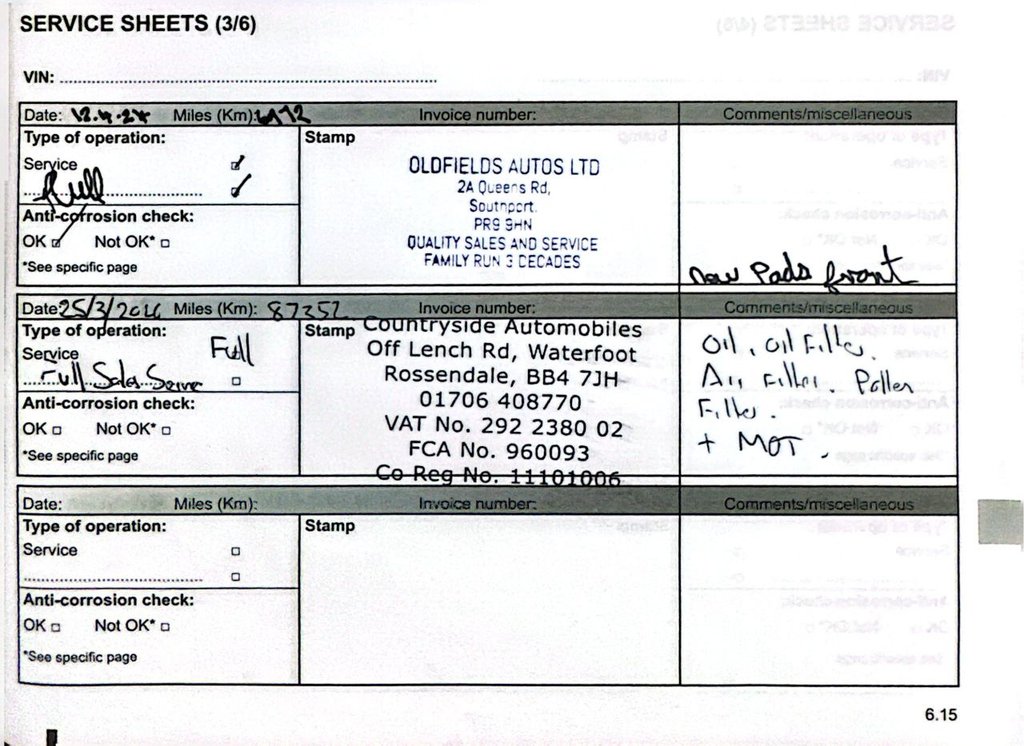 SERVICE SHEETS (3/6)
VIN:
Date: 12.4.24 Miles (Km): Invoice number: Comments/miscellaneous
Type of operation: Stamp
Service
Full
Anti-corrosion check:
OK Not OK*
*See specific page
OLDFIELDS AUTOS LTD
2A Queens Rd,
Southport.
PR9 9HN
QUALITY SALES AND SERVICE
FAMILY RUN 3 DECADES
new Pads front
Date: 25/3/2026 Miles (Km): 87352 Invoice number: Comments/miscellaneous
Type of operation: Stamp
Service Full
Full Sales Service
Anti-corrosion check:
OK Not OK*
*See specific page
Countryside Automobiles
Off Lench Rd, Waterfoot
Rossendale, BB4 7JH
01706 408770
VAT No. 292 2380 02
FCA No. 960093
Co Reg No. 11101006
Oil, Oil Filter.
Air Filter. Pollen
Filter.
+ MOT.
Date: Miles (Km): Invoice number: Comments/miscellaneous
Type of operation: Stamp
Service
Anti-corrosion check:
OK Not OK*
*See specific page
6.15